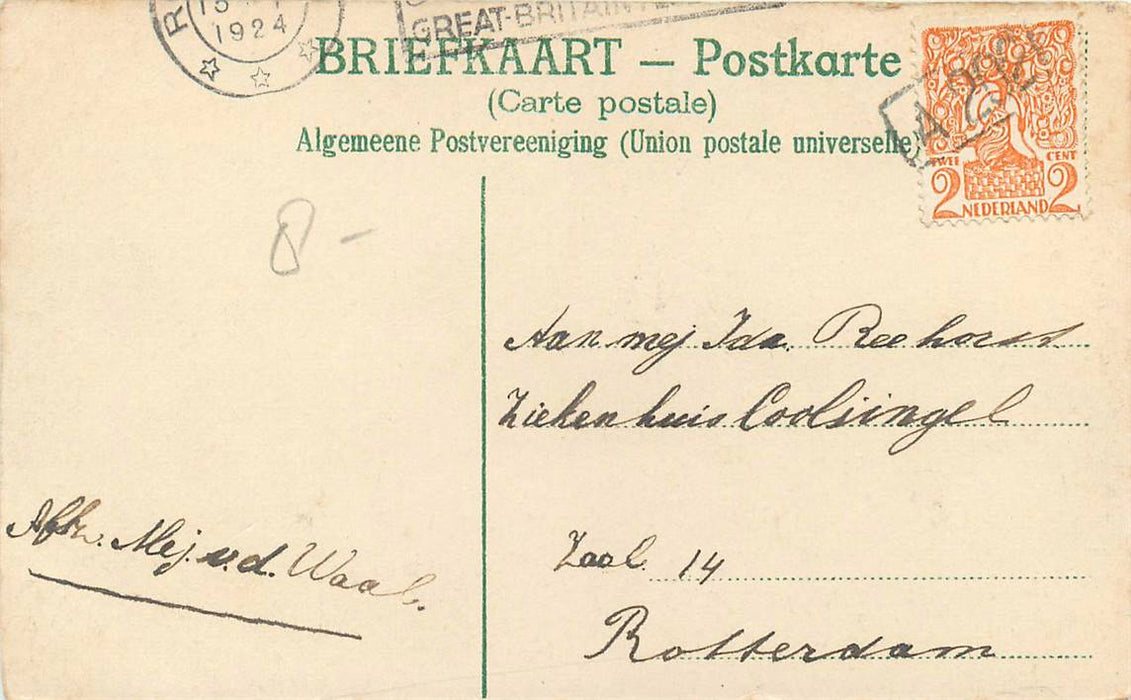 1924
GREAT-BRITAIN
BRIEFKAART — Postkarte
(Carte postale)
Algemeene Postvereeniging (Union postale universelle)
TWEE CENT
2 NEDERLAND 2
8 –
Aan mej Ida Reehorst
Ziekenhuis Coolsingel
Zaal 14
Rotterdam
Afz. Mej. v.d. Waal.